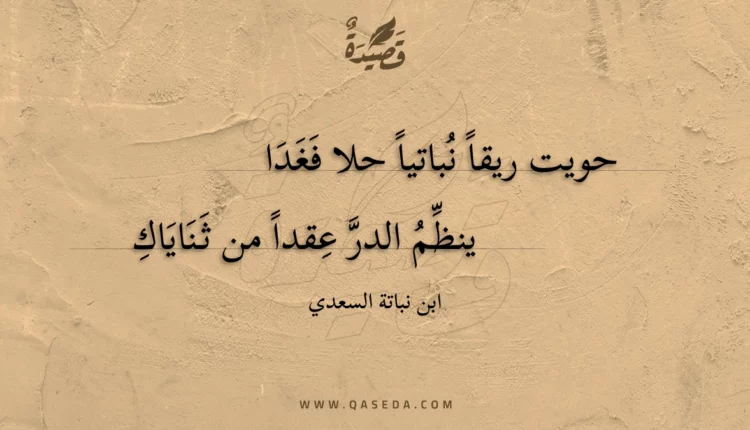 قَصِيْدَةٌ
حويت ريقاً نُباتياً حلا فَغَدَا
ينظِّمُ الدرَّ عِقداً من ثَنَايَاكِ
ابن نباتة السعدي
WWW.QASEDA.COM